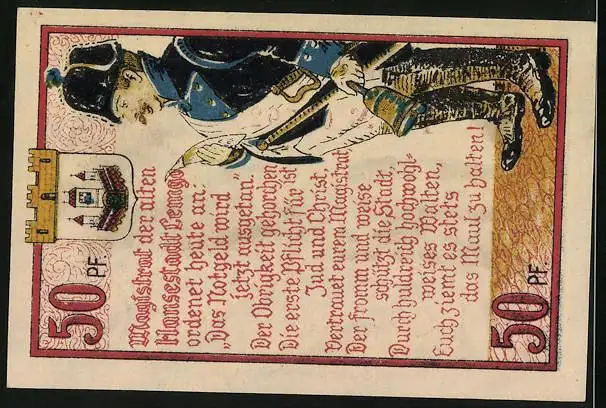 50 PF.
Magistrat der alten
Hansestadt Lemgo
ordenet heute an:
„Das Notgeld wird
jetzt ausgetan.
Der Obrikeit gehorchen
Die erste Pflicht für ist
Jud und Christ,
Vertrauet eurem Magistrat
Der fromm und weise
schützt die Stadt.
Durch huldreich hochwohl-
weises Walten,
Euch ziemt es stets
das Maul zu halten!
50 PF.